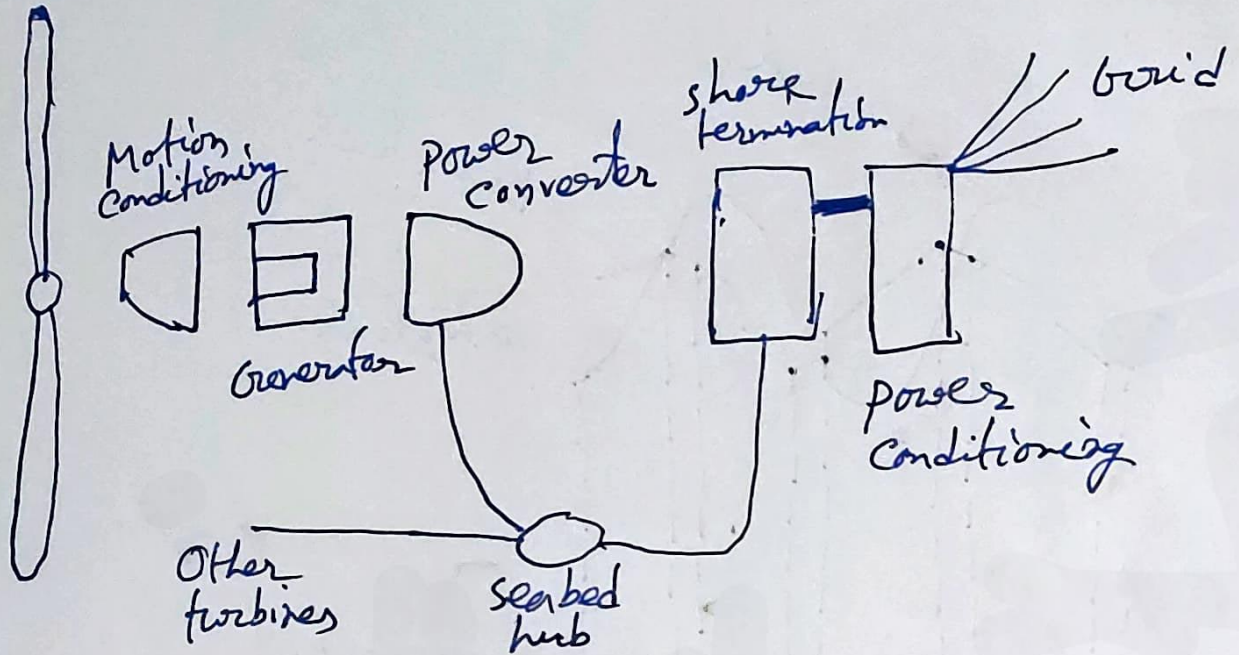 Motion
conditioning
Generator
Power
converter
shore
termination
Grid
Power
Conditioning
Other
turbines
seabed
hub